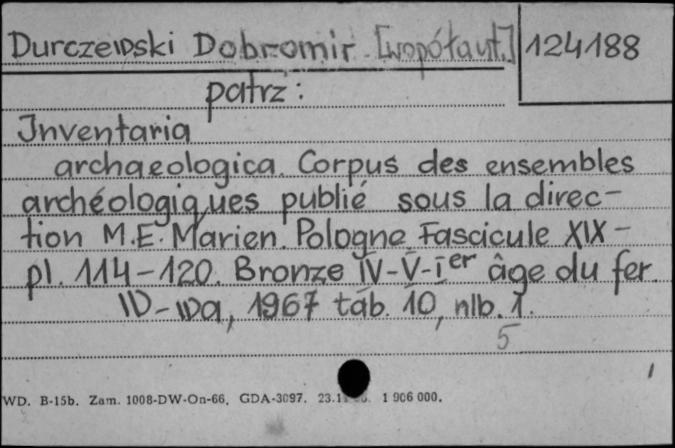 Durczewski Dobromir [współaut.] 124188
patrz:
Inventaria
archaeologica. Corpus des ensembles
archéologiques publié sous la direc-
tion M.E. Marien. Pologne. Fascicule XIX-
pl. 114-120. Bronze IV-V-Ier âge du fer.
W-wa, 1967 tab. 10, nlb. 1.
5
1
WD. B-15b. Zam. 1008-DW-On-66. GDA-3097. 1 906 000.